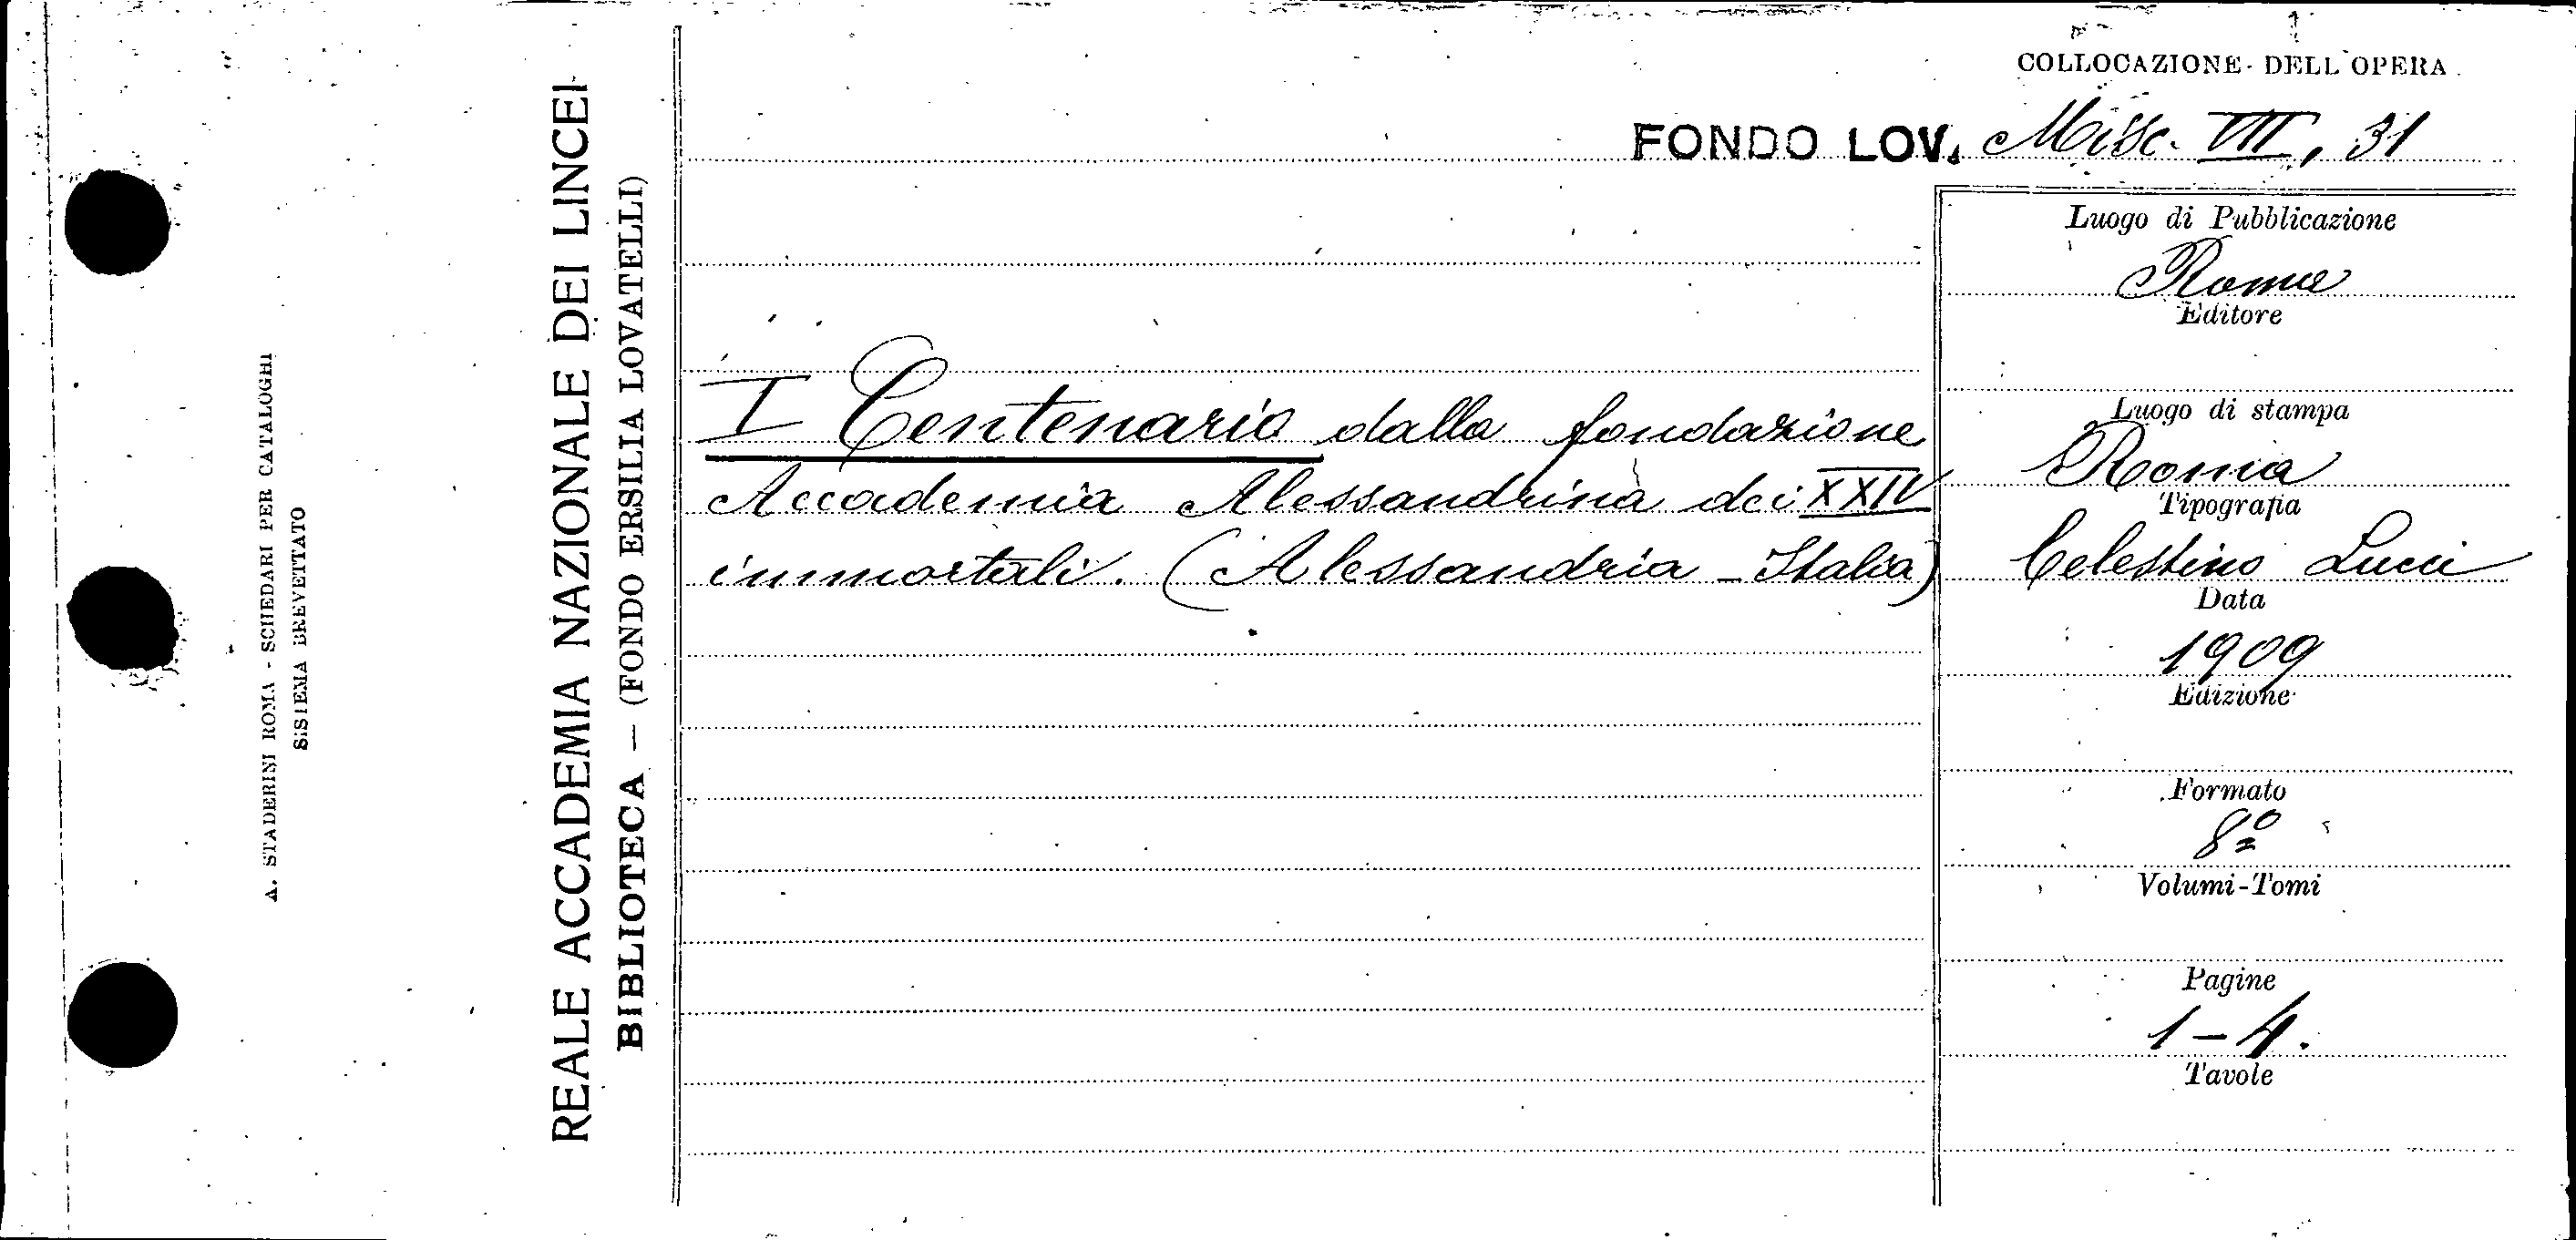 COLLOCAZIONE DELL'OPERA
FONDO LOV. Misc. VII, 31
REALE ACCADEMIA NAZIONALE DEI LINCEI
BIBLIOTECA — (FONDO ERSILIA LOVATELLI)
A. STADERINI ROMA - SCHEDARI PER CATALOGHI
SISTEMA BREVETTATO
I Centenario dalla fondazione
Accademia Alessandrina dei XXIV
immortali. (Alessandria - Italia)
Luogo di Pubblicazione
Roma
Editore
Luogo di stampa
Roma
Tipografia
Celestino Lucci
Data
1909
Edizione
Formato
8º
Volumi-Tomi
Pagine
1-4.
Tavole